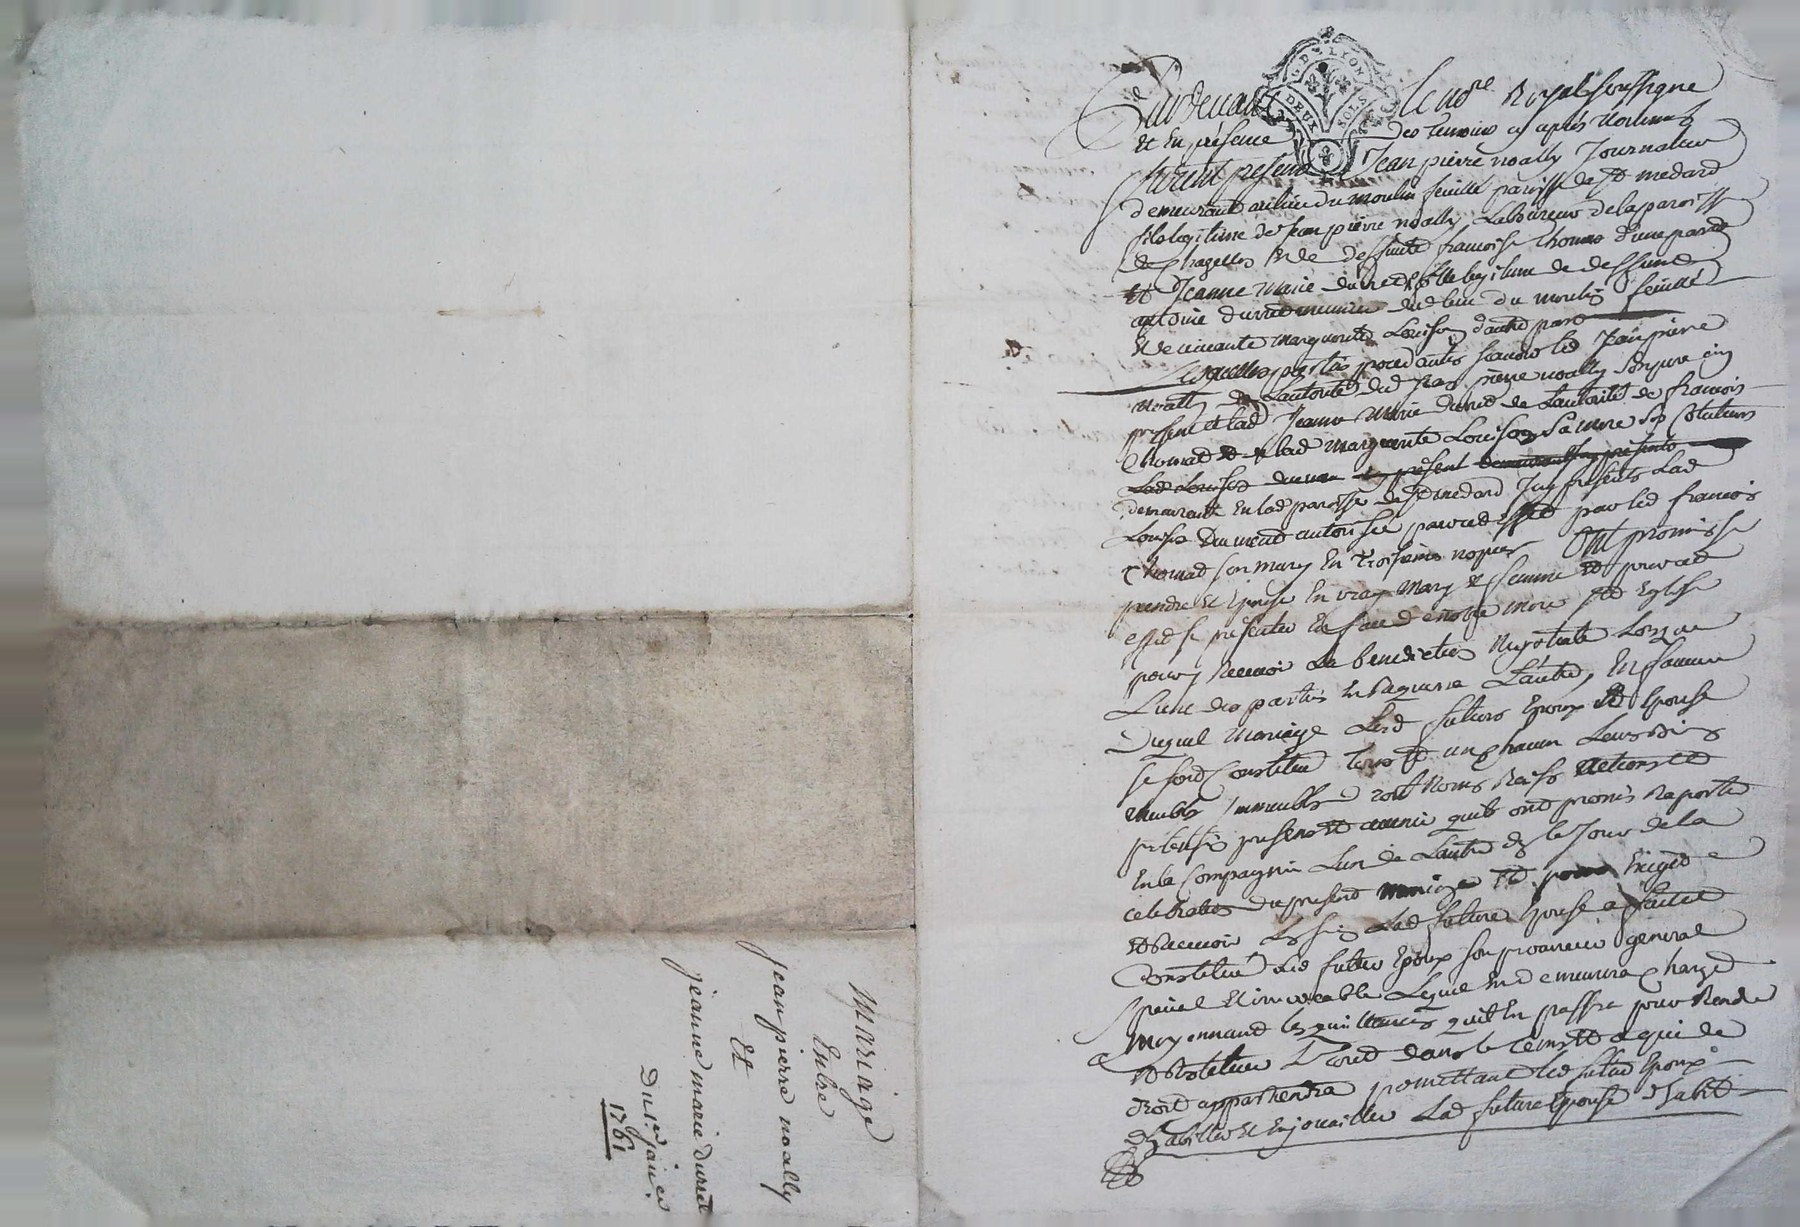 Mariage
Entre
jean pierre noally
Et
jeanne marie durret
Du 1er janvier
1761
G. DE LYON
DEUX SOLS
Pardevant le no.re Royal soussigné
Et En présence Des temoins cy après Nommés
furent presens Jean pierre noally Journalier
demeurant au lieu du moulin feuillé paroisse de St medard
fils legitime de Jean pierre noally Laboureur de la paroisse
de Chazelles Et de deffunte francoise Thomas d'une part
Et Jeanne Marie durret fille legitime de deffunt
antoine durret meunier dud lieu du moulin feuillé
Et de vivante marguerite Louison d'autre part
Lesquelles parties procedantes scavoir led Jean pierre
noally de Lautorité dud Jean pierre noally son pere icy
présent et lad Jeanne Marie durret de Lautorité de francois
Thomas Et lad marguerite Louison Sa mere
présent
demeurant En lad paroisse de St medard Icy présents Lad
Louison autorisée par led francois
Thomas son mary En troisieme nopces Ont promis se
prendre Et Epouser En vray Mary Et femme Et pour cet
effet se présenter En face de notre mere Ste Eglise
pour y Recevoir La benediction Nuptiale Lorsque
L'une des parties En Requerra L'autre, En faveur
Duquel Mariage Lesd futurs Epoux Et Epouse
se sont Constitué tous Et un chacun Leurs biens
meubles Immeubles droits Noms Raisons actions Et
pretentions présens Et avenir quils ont promis Raporter
En la Compagnie Lun de Lautre le Jour de la
celebration du présent mariage Et pour Exiger
Et Recevoir Lad future Epouse a fait Et
Constitué Led futur Epoux son procureur general
special Et irrevocable Lequel En demeurera chargé
Moyennant les quittances quil En passera pour Rendre
Et Restituer Le tout dans le tems Et a qui de
droit appartiendra promettant led futur Epoux
d'habiller Et Enjoailler Lad future Epouse d'habit